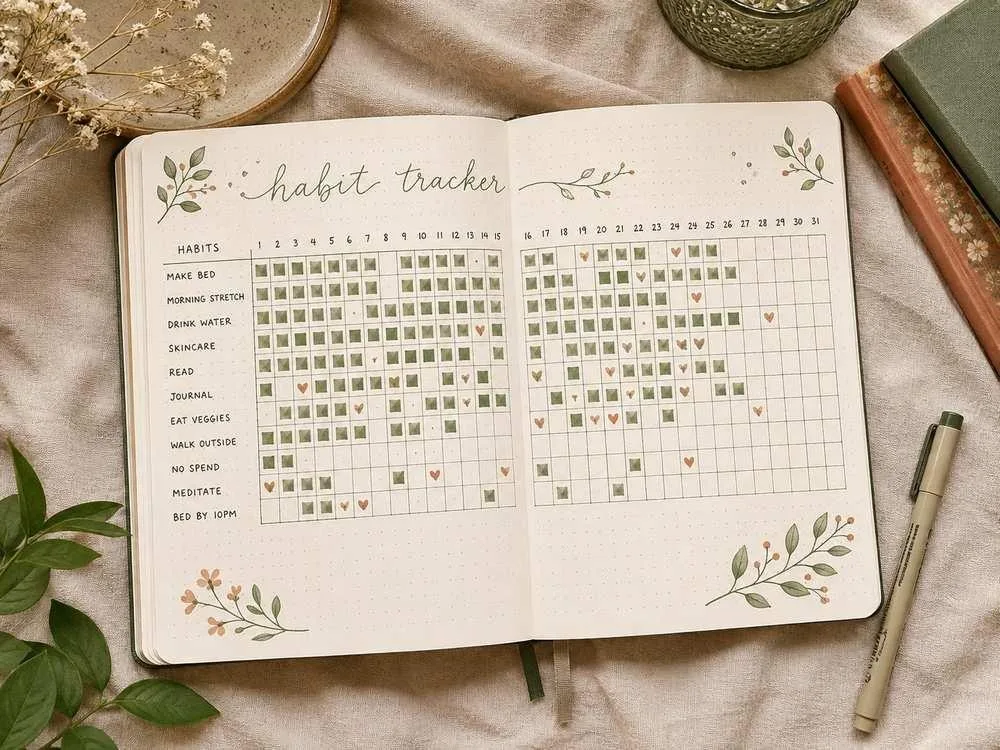 habit tracker
HABITS 1 2 3 4 5 6 7 8 9 10 11 12 13 14 15 16 17 18 19 20 21 22 23 24 24 25 26 27 28 29 30 31
MAKE BED
MORNING STRETCH
DRINK WATER
SKINCARE
READ
JOURNAL
EAT VEGGIES
WALK OUTSIDE
NO SPEND
MEDITATE
BED BY 10PM